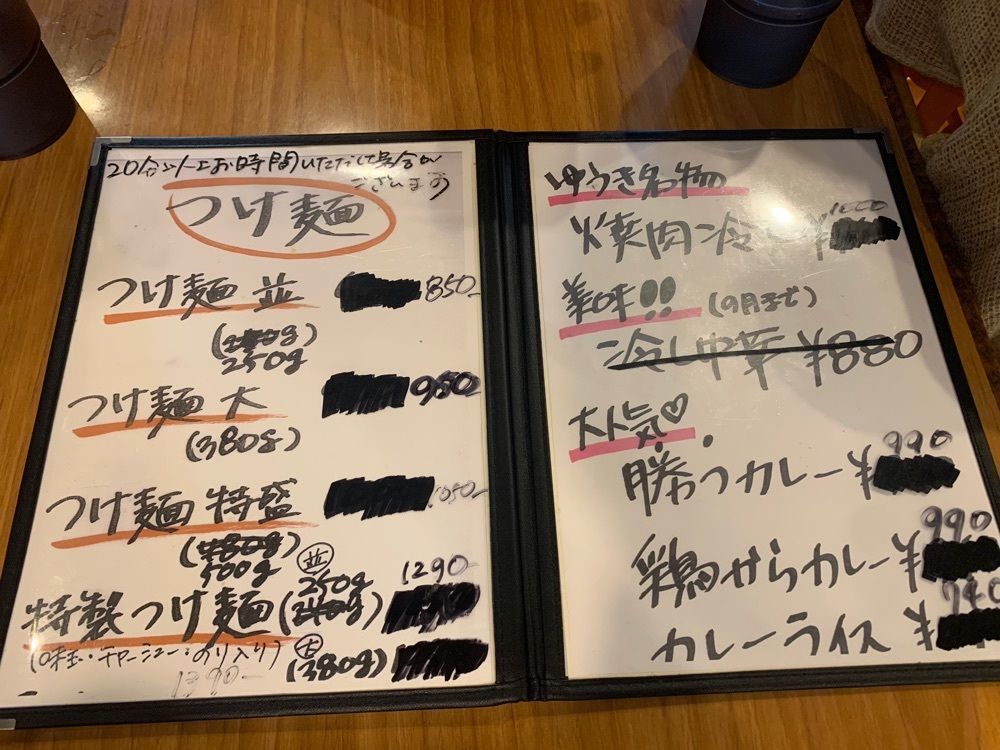 20分以上お時間いただく場合が
ございます
つけ麺
つけ麺 並 850-
250g
つけ麺 大 950-
(380g)
つけ麺 特盛 1050-
500g
並 250g 1290-
特製つけ麺
(味玉・チャーシュー・のり入り) 大 (380g)
1390-
ゆうき名物
焼肉冷し ¥1000
美味!! (9月まで)
冷し中華 ¥880
大人気♡
勝つカレー ¥990
鶏からカレー ¥990
カレーライス ¥740